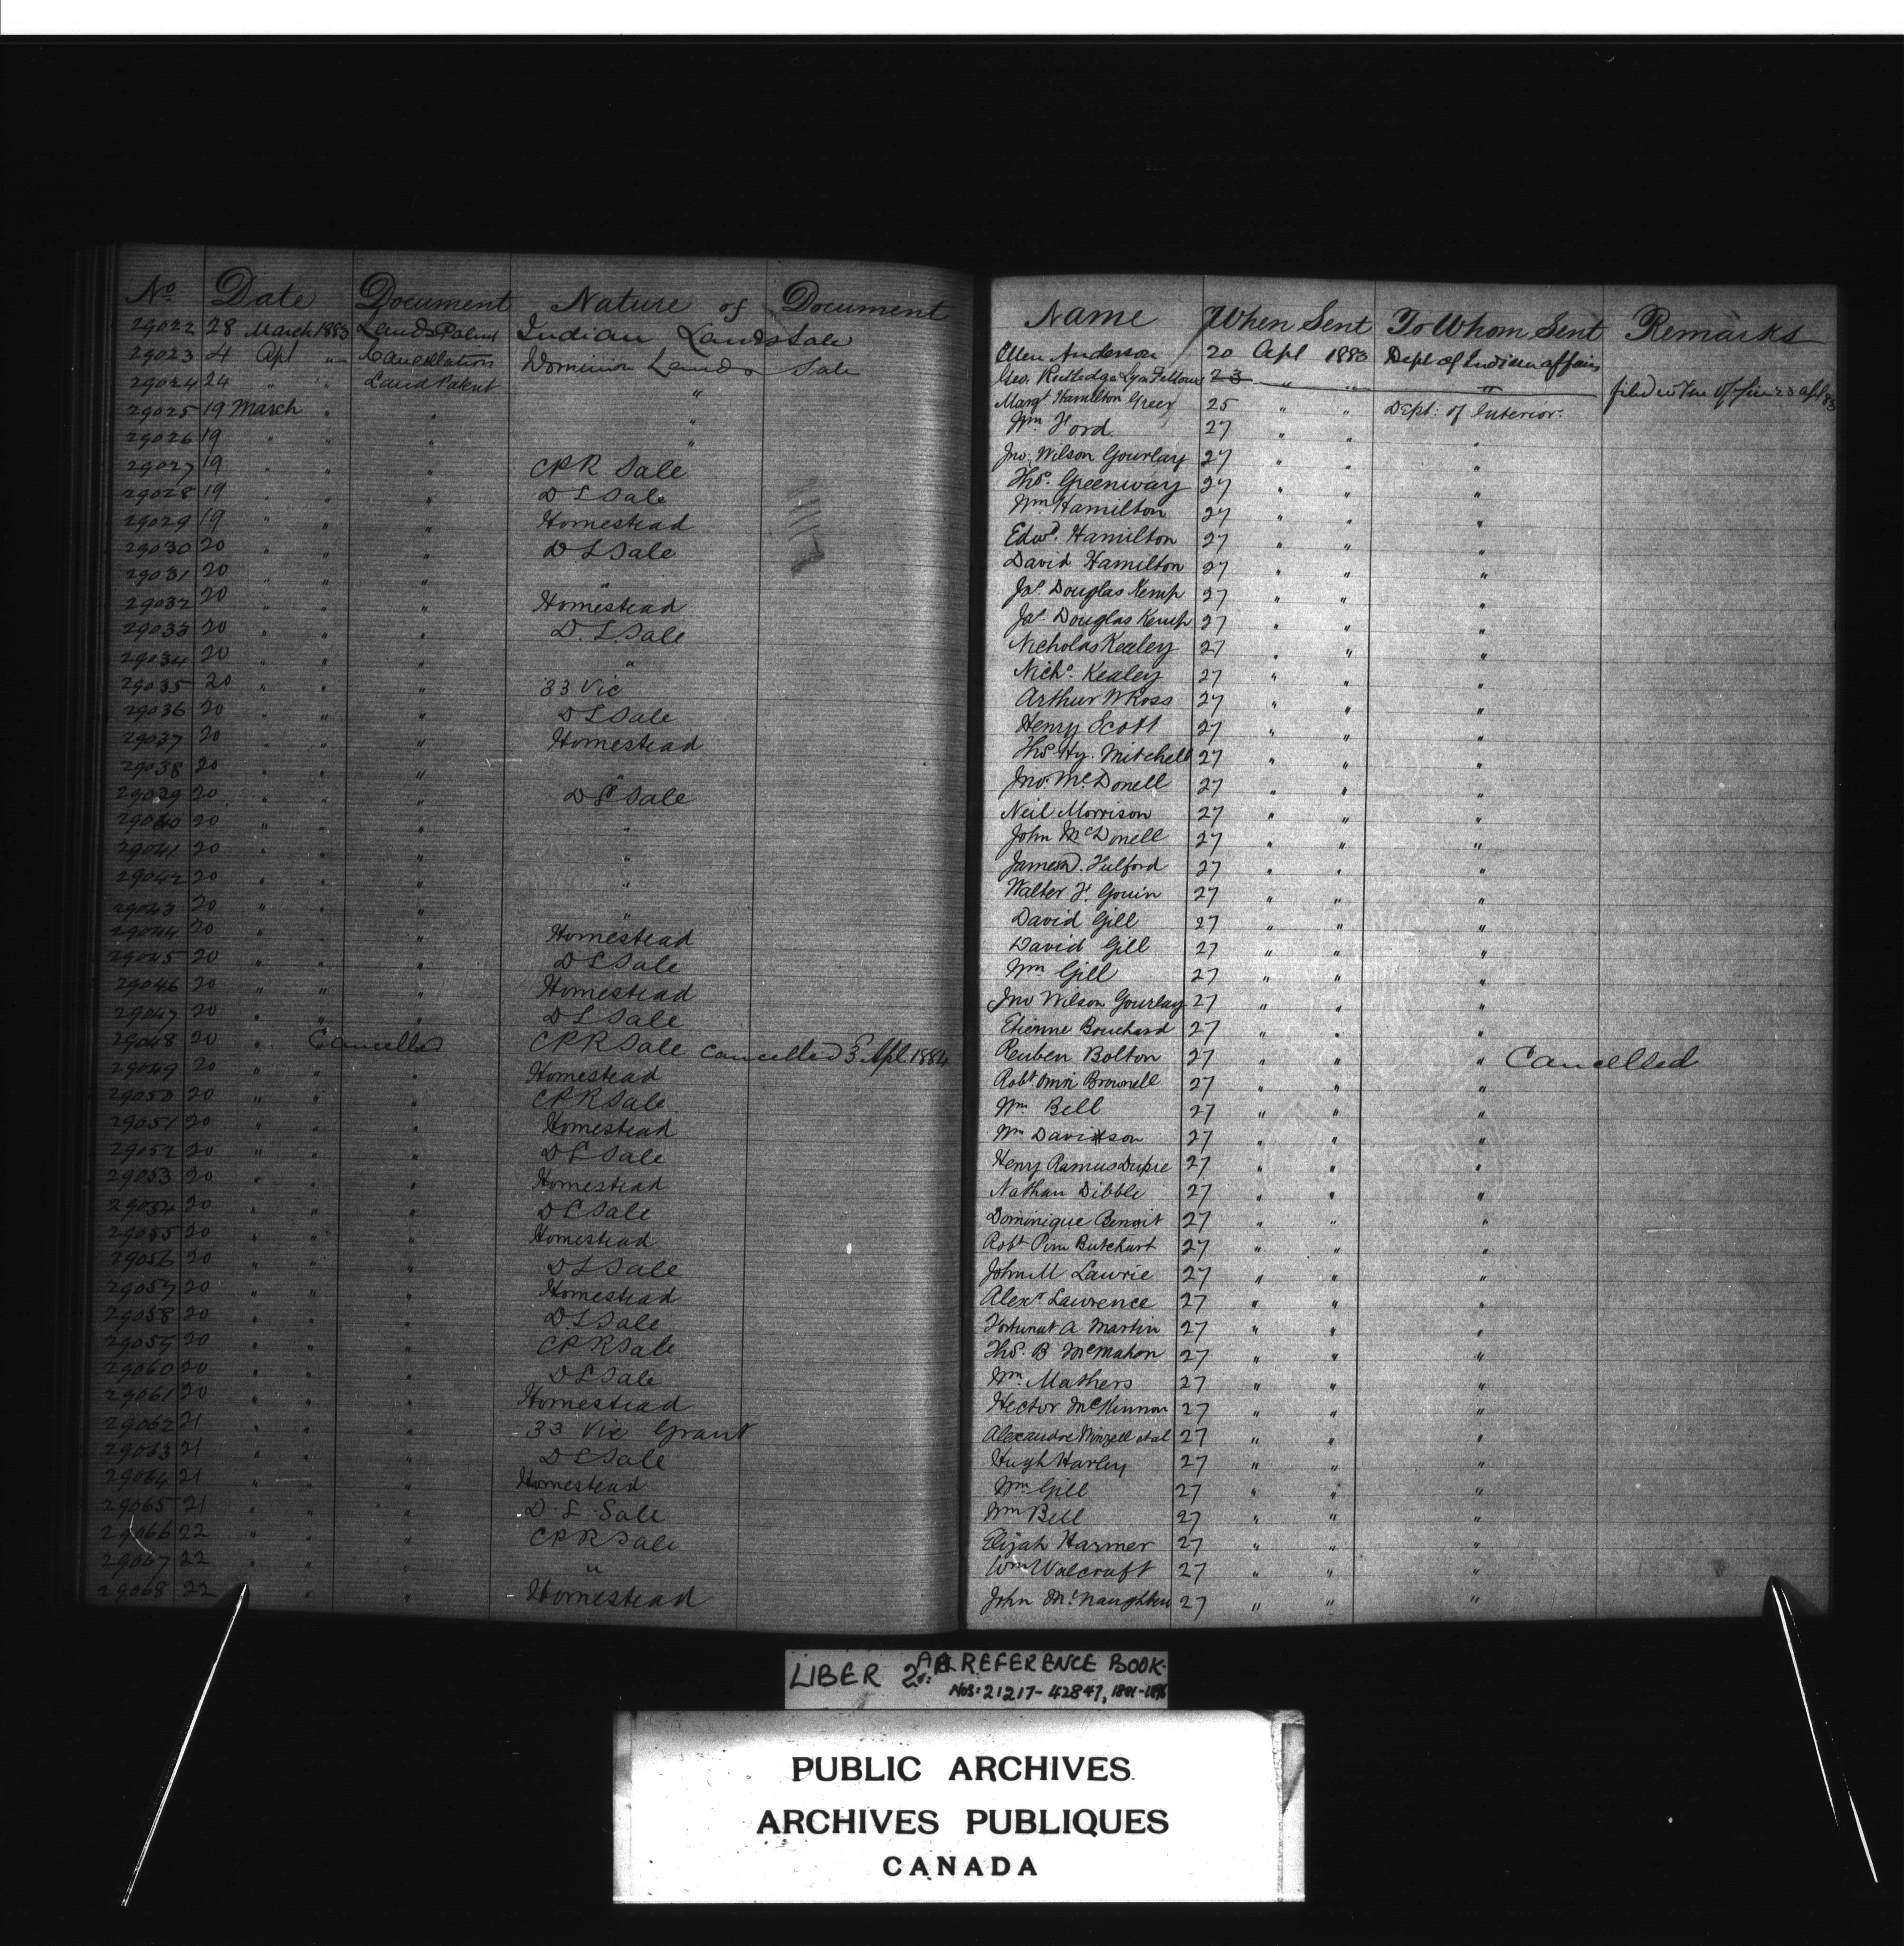 No Date Document Nature of Document
29022 28 March 1883 Lands Patent Indian Lands Sale
29023 4 Apl " Cancellation Dominion Lands Sale
29024 24 " " Land Patent "
29025 19 March " " "
29026 19 " " " "
29027 19 " " " CPR Sale
29028 19 " " " D L Sale
29029 19 " " " Homestead
29030 20 " " " D L Sale
29031 20 " " " "
29032 20 " " " Homestead
29033 20 " " " D. L Sale
29034 20 " " " "
29035 20 " " " 33 Vic
29036 20 " " " D L Sale
29037 20 " " " Homestead
29038 20 " " " "
29039 20 " " " D L Sale
29040 20 " " " "
29041 20 " " " "
29042 20 " " " "
29043 20 " " " "
29044 20 " " " Homestead
29045 20 " " " D L Sale
29046 20 " " " Homestead
29047 20 " " " D L Sale
29048 20 " Cancelled CPR Sale Cancelled 3 Apl. 1884
29049 20 " " " Homestead
29050 20 " " " CPR Sale
29051 20 " " " Homestead
29052 20 " " " D L Sale
29053 20 " " " Homestead
29054 20 " " " D L Sale
29055 20 " " " Homestead
29056 20 " " " D L Sale
29057 20 " " " Homestead
29058 20 " " " D L Sale
29059 20 " " " CPR Sale
29060 20 " " " D L Sale
29061 20 " " " Homestead
29062 21 " " " 33 Vic Grant
29063 21 " " " D L Sale
29064 21 " " " Homestead
29065 21 " " " D L Sale
29066 22 " " " CPR Sale
29067 22 " " " "
29068 22 " " " Homestead
Name When Sent To Whom Sent Remarks
Ellen Anderson 20 Apl 1883 Dept of Indian affairs
Geo. Rutledge Fellows 23 " " " filed in the Office 23 apl 83
Margt Hamilton Greer 25 " " Dept: of Interior.
Wm Ford 27 " " "
Jno. Wilson Gourlay 27 " " "
Thos. Greenway 27 " " "
Wm Hamilton 27 " " "
Edwd. Hamilton 27 " " "
David Hamilton 27 " " "
Jas. Douglas Kemp 27 " " "
Jas. Douglas Kemp 27 " " "
Nicholas Kealey 27 " " "
Nichs. Kealey 27 " " "
Arthur W Ross 27 " " "
Henry Scott 27 " " "
Thos Hy. Mitchell 27 " " "
Jno. McDonell 27 " " "
Neil Morrison 27 " " "
John McDonell 27 " " "
James D. Fulford 27 " " "
Walter F. Gouin 27 " " "
David Gill 27 " " "
David Gill 27 " " "
Wm Gill 27 " " "
Jno Wilson Gourlay 27 " " "
Etienne Bouchard 27 " " "
Reuben Bolton 27 " " " Cancelled
Robt Omri Brownell 27 " " "
Wm. Bell 27 " " "
Wm Davidson 27 " " "
Henry Ramus Dupre 27 " " "
Nathan Dibble 27 " " "
Dominique Benoit 27 " " "
Robt Pim Butchart 27 " " "
John M Lawrie 27 " " "
Alexr Lawrence 27 " " "
Fortunat A Martin 27 " " "
Thos. B McMahon 27 " " "
Wm. Mathers 27 " " "
Hector McKinnon 27 " " "
Alexandre et al 27 " " "
Hugh Harley 27 " " "
Wm Gill 27 " " "
Wm Bell 27 " " "
Elijah Harmer 27 " " "
Wm Walcraft 27 " " "
John McNaughton 27 " " "
LIBER 2 REFERENCE BOOK-
NOS: 21217-42847,
PUBLIC ARCHIVES
ARCHIVES PUBLIQUES
CANADA